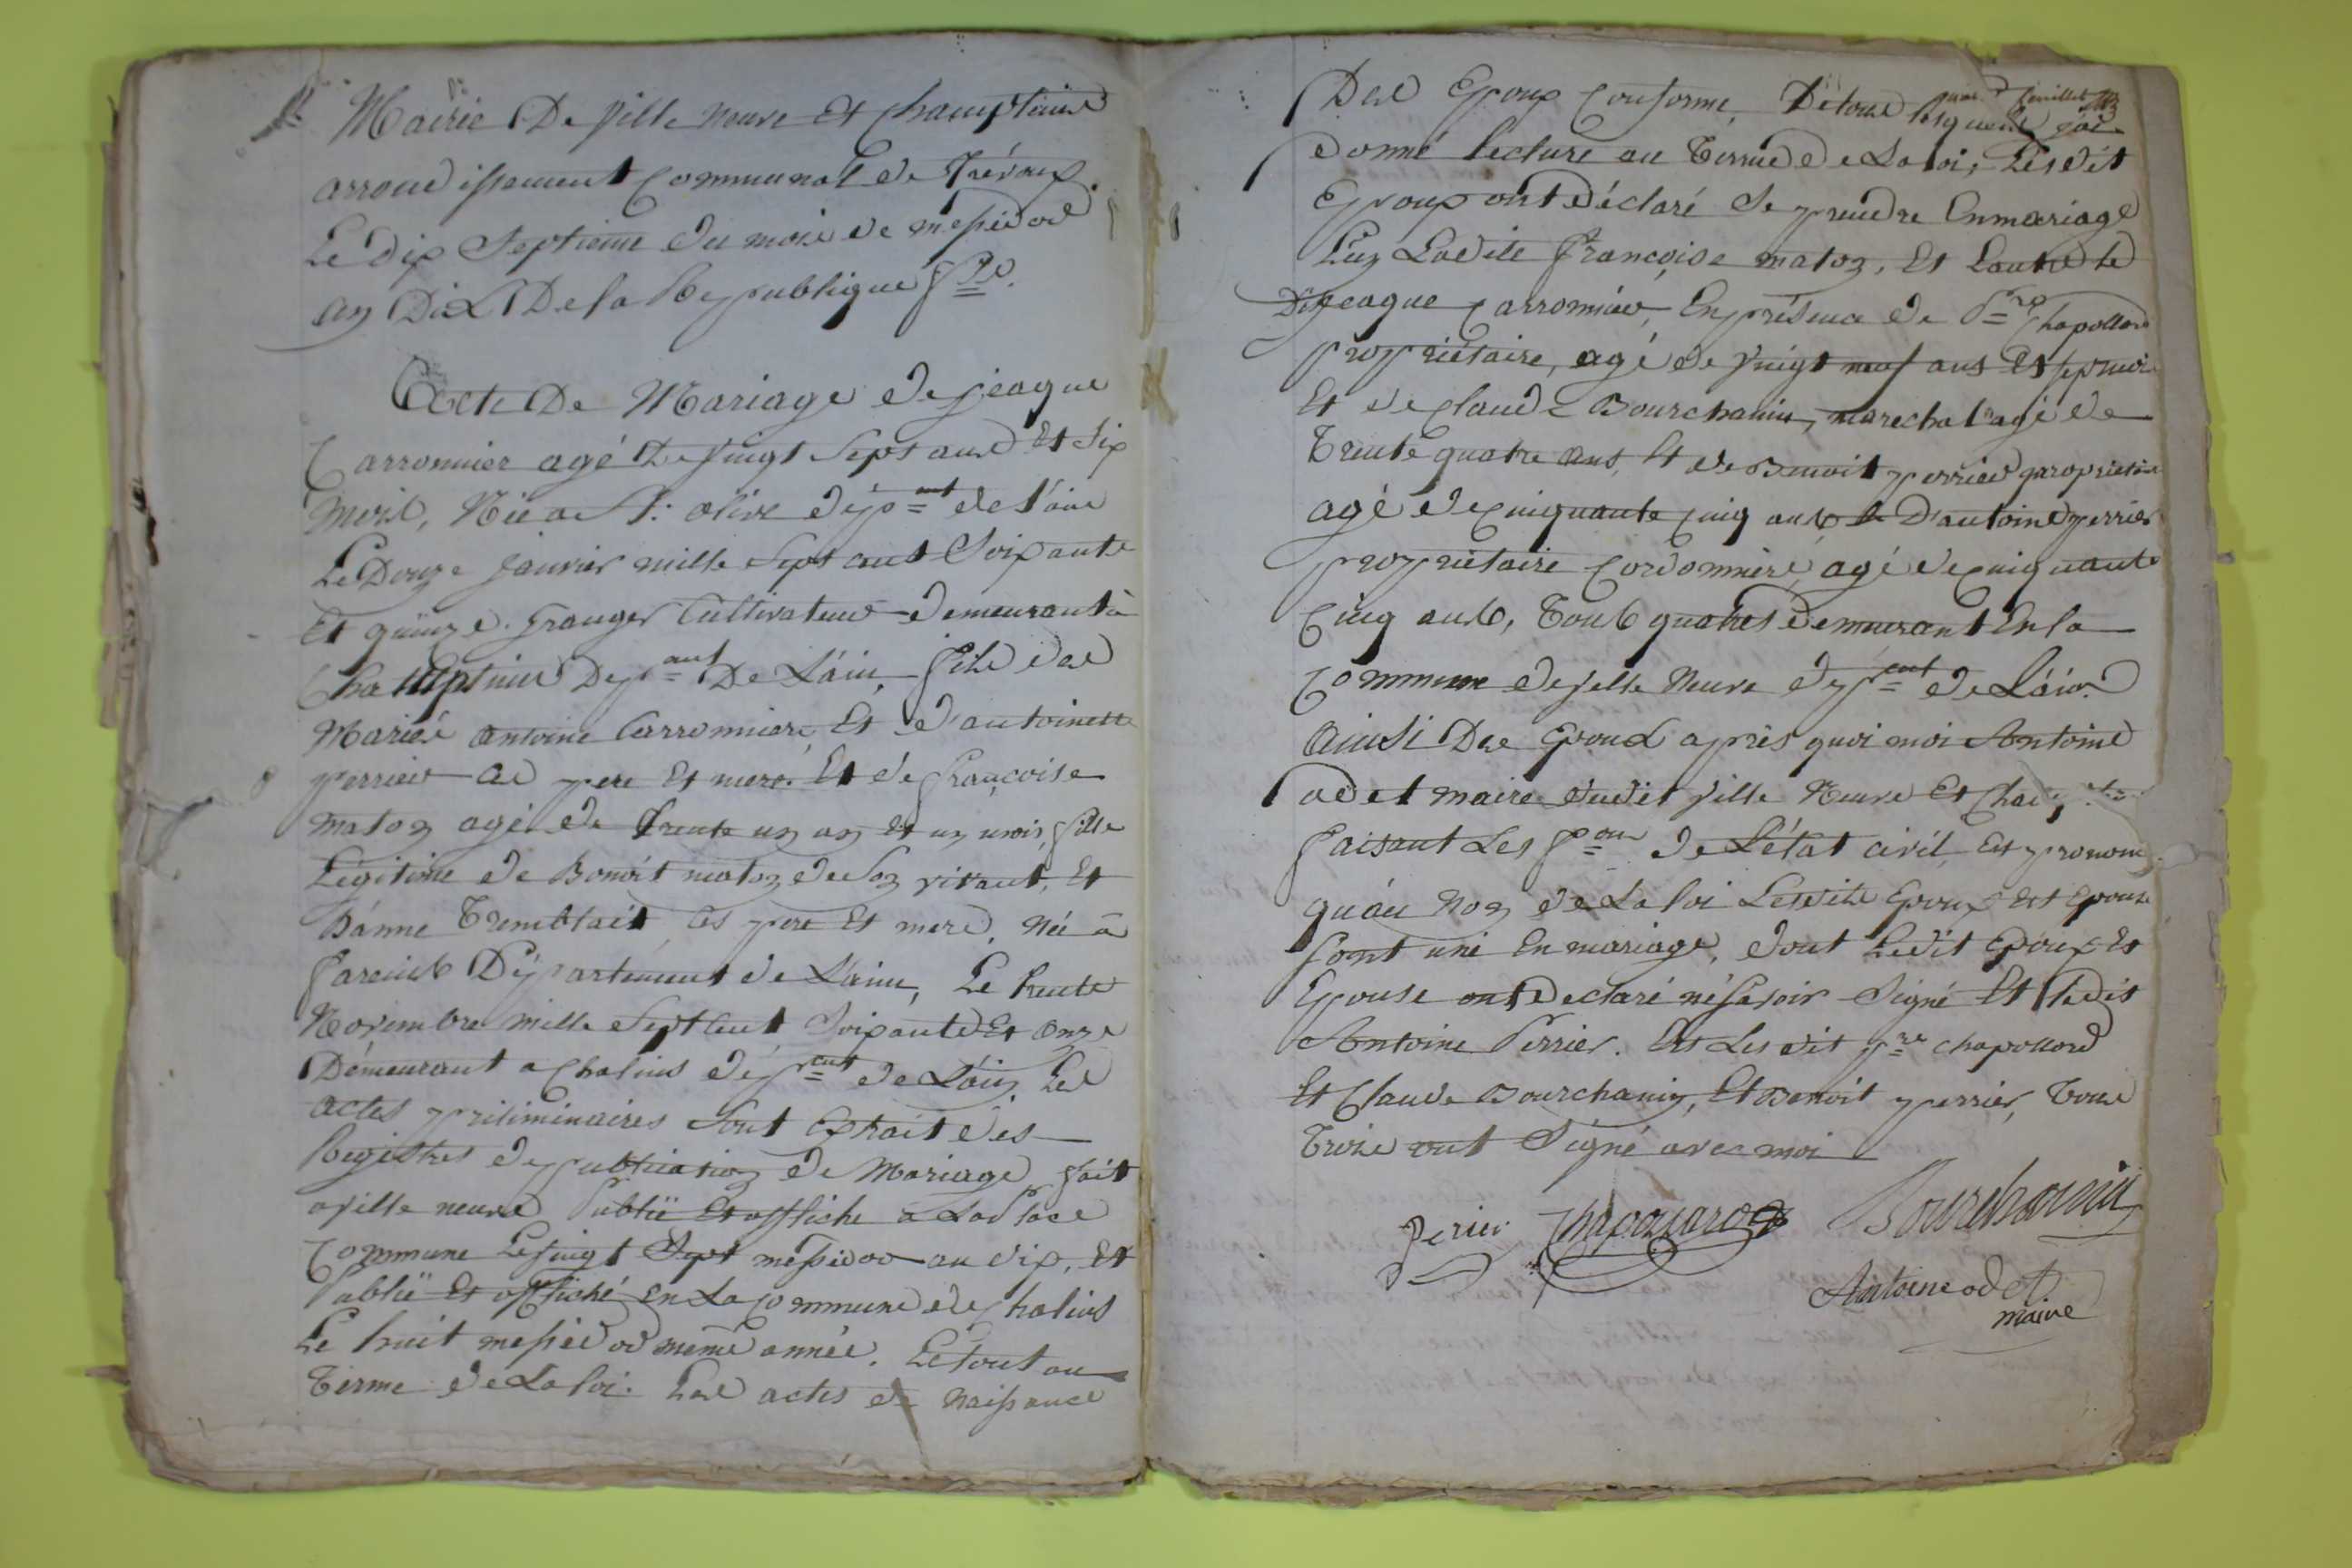 Mairie De ville neuve Et Champteins
arrondissement Communal de Trévoux
Le dix Septieme du mois de messidor
an Dix De la Republique fse
Acte De Mariage de jeaque
Carronnier agé De vingt Sept ans Et Six
mois, Née a St: olive dépant de l'ain
Le Douze janvier mille Sept cent Soixante
Et quinze. granger Cultivateur demeurant à
Champteins Depant De L'ain, fils des
Mariés antoine Carronnier, Et d'antoinette
perrier ces pere Et mere. Et de françoise
maton agé de trente un an Et un mois, fille
Legitime de Benoit maton de son vivant, Et
D'anne Tremblait ces pere Et mere, née a
fareins Département de L'ain, Le trente
Novembre mille Sept Cent Soixante Et onze
Demeurant a Chalins départ de L'ain Les
actes preliminaires Sont Extrait des
Registres de publication de Mariage fait
a ville neuve Publié Et affiché a La Place
Commune Le vingt Sept messidor an dix, Et
Publié Et affiché En La Commune de Chalins
Le huit messidor meme année. Le tout au
Terme de La loi. Les actes de naissance
feuillet
Des Epoux Conforme, De tous lesquels j'ai
donné lecture au Terme de La loi, Lesdit
Epoux ont déclaré Se prendre En mariage
L'un Ladite françoise maton, Et L'autre le
Dit jeaque Carronnier, En présence de Pre Chapollard
propriétaire, agé de vingt neuf ans Et sep mois
Et de Claude Bourchanin, marechal agé de
Trente quatre ans, Et de Benoit perrier propriétaire
agé de Cinquante Cinq ans, Et D'antoine perrier
propriétaire Cordonnière, agé de Cinquante
Cinq ans, Tous quatres demeurant En la
Commune de ville Neuve départ de L'ain
Ainsi Des Epoux après quoi moi Antoine
odet maire dudit ville Neuve Et
faisant Les fon de L'état civil, Et prononcé
qu'au Non de La loi Lesdits Epoux Et Epouse
Sont uni En mariage, dont Ledit Epoux Et
Epouse ont declaré né Savoir Signé Et ledit
Antoine Perrier. Et Les dit pre Chapollard
Et Claude Bourchanin, Et Benoit perrier, Tous
Trois ont Signé avec moi
Perier Chapolard Bourchanin
Antoine odet
maire